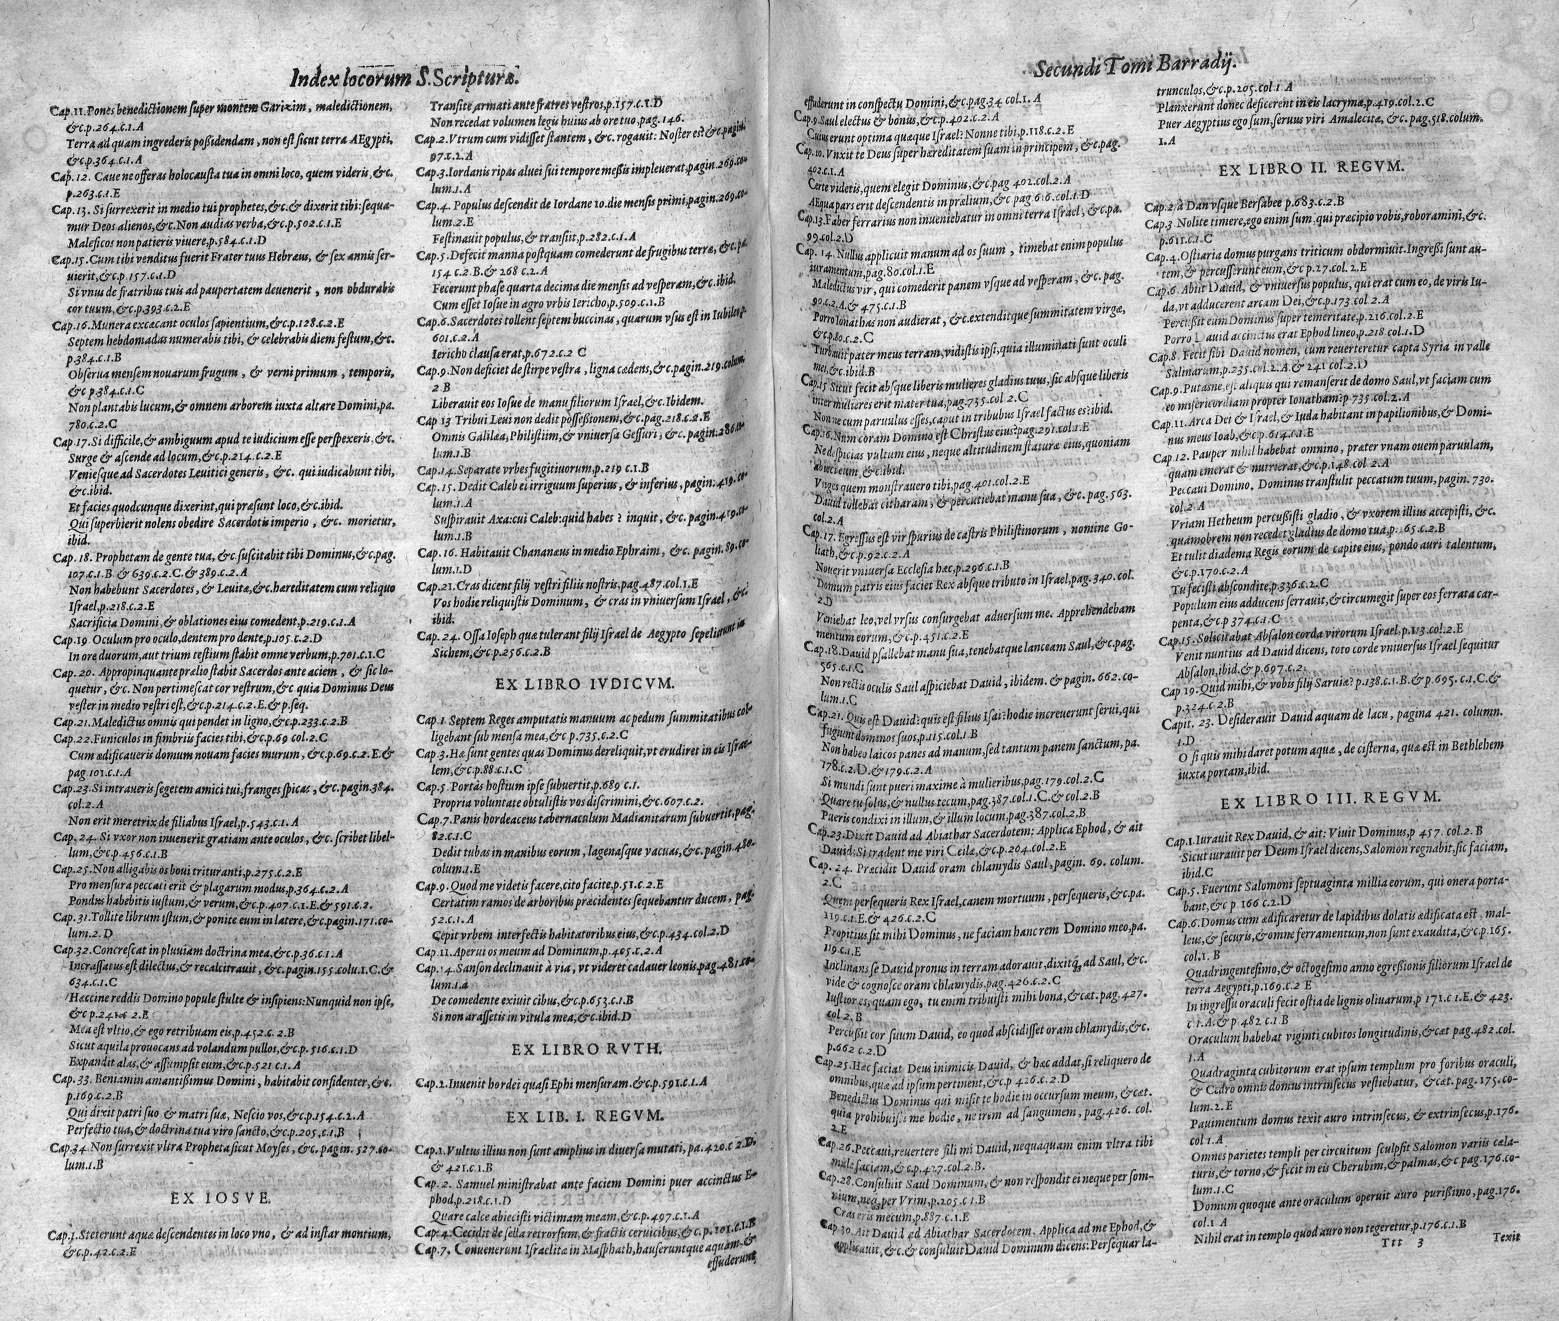 Index locorum S. Scripturæ.
Cap.11. Pones benedictionem super montem Garizim, maledictionem,
&c.p.264.c.1.A
Terra ad quam ingrederis possidendam, non est sicut terra AEgypti,
&c.p.364.c.1.A
Cap.12. Caue ne offeras holocausta tua in omni loco, quem videris, &c.
p.263.c.1.E
Cap.13. Si surrexerit in medio tui prophetes,&c.& dixerit tibi: sequa-
mur Deos alienos,&c. Non audias verba,&c.p.502.c.1.E
Maleficos non patieris viuere,p.584.c.1.D
Cap.15. Cum tibi venditus fuerit Frater tuus Hebræus, & sex annis ser-
uierit,&c.p.157.c.1.D
Si vnus de fratribus tuis ad paupertatem deuenerit, non obdurabis
cor tuum,&c.p.393.c.2.E
Cap.16. Munera excæcant oculos sapientium,&c.p.128.c.2.E
Septem hebdomadas numerabis tibi, & celebrabis diem festum,&c.
p.384.c.1.B
Obserua mensem nouarum frugum, & verni primum, temporis,
&c p.384.c.1.C
Non plantabis lucum,& omnem arborem iuxta altare Domini,pa.
780.c.2.C
Cap.17. Si difficile,& ambiguum apud te iudicium esse perspexeris,&c.
Surge & ascende ad locum,&c.p.214.c.2.E
Veniesque ad Sacerdotes Leuitici generis, &c. qui iudicabunt tibi,
&c.ibid.
Et facies quodcunque dixerint,qui præsunt loco,&c.ibid.
Qui superbierit nolens obedire Sacerdotis imperio, &c. morietur,
ibid.
Cap. 18. Prophetam de gente tua,&c suscitabit tibi Dominus,&c.pag.
107.c.1.B & 639.c.2.C.& 389.c.2.A
Non habebunt Sacerdotes, & Leuitæ,&c.hereditatem cum reliquo
Israel,p.218.c.2.E
Sacrificia Domini,& oblationes eius comedent,p.219.c.1.A
Cap.19 Oculum pro oculo,dentem pro dente,p.105.c.2.D
In ore duorum,aut trium testium stabit omne verbum,p.701.c.1.C
Cap.20. Appropinquante prælio stabit Sacerdos ante aciem, & sic lo-
quetur, &c. Non pertimescat cor vestrum,&c quia Dominus Deus
vester in medio vestri est,&c.p.214.c.2.E.& p.seq.
Cap.21. Maledictus omnis qui pendet in ligno,&c.p.233.c.2.B
Cap.22. Funiculos in fimbriis facies tibi,&c.p.69 col.2.C
Cum ædificaueris domum nouam facies murum, &c.p.69.c.2.E.&
pag.101.c.1.A
Cap.23. Si intraueris segetem amici tui,franges spicas, &c.pagin.384.
col.2.A
Non erit meretrix de filiabus Israel,p.543.c.1.A
Cap.24. Si vxor non inuenerit gratiam ante oculos, &c. scribet libel-
lum,&c.p.456.c.1.B
Cap.25. Non alligabis os boui trituranti,p.275.c.2.E
Pro mensura peccati erit & plagarum modus,p.364.c.2.A
Pondus habebitis iustum,& verum,&c.p.407.c.1.E.& 591.c.2.
Cap.31. Tollite librum istum,& ponite eum in latere,&c.pagin.171.co-
lum.2.D
Cap.32. Concrescat in pluuiam doctrina mea,&c.p.36.c.1.A
Incrassatus est dilectus,& recalcitrauit, &c.pagin.155.colu.1.C.&
634.c.1.C
Hæccine reddis Domino popule stulte & insipiens: Nunquid non ipse,
&c p.241.c 2.E
Mea est vltio,& ego retribuam eis,p.452.c.2.B
Sicut aquila prouocans ad volandum pullos,&c.p.516.c.1.D
Expandit alas,& assumpsit eum,&c.p.521 c.1.A
Cap. 33. Beniamin amantissimus Domini, habitabit confidenter,&c.
p.169.c.2.B
Qui dixit patri suo & matri suæ, Nescio vos,&c.p.154.c.2.A
Perfectio tua,& doctrina tua viro sancto,&c.p.205.c.1.B
Cap.34. Non surrexit vltra Propheta sicut Moyses, &c.pagin. 527.co-
lum.1.B
EX IOSVE.
Cap.3. Steterunt aquæ descendentes in loco vno, & ad instar montium,
&c.p.42.c.2.E
Transite armati ante fratres vestros,p.157.c.1.D
Non recedat volumen legis huius ab ore tuo,pag.146.
Cap.2. Vtrum cum vidisset stantem, &c. rogauit: Noster es?&c.pagin.
97.c.2.A
Cap.3. Iordanis ripas aluei sui tempore messis impleuerat,pagin.269.co-
lum.1.A
Cap.4. Populus descendit de Iordane 10.die mensis primi,pagin.269.co-
lum.2.E
Festinauit populus,& transiit,p.282.c.1.A
Cap.5. Defecit manna postquam comederunt de frugibus terræ, &c.p.
154 c.2.B.& 268 c.2.A
Fecerunt phase quarta decima die mensis ad vesperam,&c.ibid.
Cum esset Iosue in agro vrbis Iericho,p.509.c.1.B
Cap.6. Sacerdotes tollent septem buccinas, quarum vsus est in Iubileo,p.
601.c.2.A
Iericho clausa erat,p.672.c.2 C
Cap.9. Non deficiet de stirpe vestra, ligna cædens,&c.pagin.219.colum.
2 B
Liberauit eos Iosue de manu filiorum Israel,&c.Ibidem.
Cap 13 Tribui Leui non dedit possessionem,&c.pag.218.c.2.E
Omnis Galilæa,Philistiim,& vniuersa Gessuri, &c.pagin.286.co-
lum.1.B
Cap.14. Separate vrbes fugitiuorum,p.219 c.1.B
Cap.15. Dedit Caleb ei irriguum superius, & inferius, pagin.419.co-
lum.1.A
Suspirauit Axa:cui Caleb:quid habes? inquit, &c.pagin.419.co-
lum.1.B
Cap.16. Habitauit Chananæus in medio Ephraim, &c. pagin.89.co-
lum.1.D
Cap.21. Cras dicent filij vestri filiis nostris,pag.487.col.1.E
Vos hodie reliquistis Dominum, & cras in vniuersum Israel, &c.
ibid.
Cap.24. Ossa Ioseph quæ tulerant filij Israel de Aegypto sepelierunt in
Sichem,&c.p.256.c.2.B
EX LIBRO IVDICVM.
Cap.1. Septem Reges amputatis manuum ac pedum summitatibus col-
ligebant sub mensa mea,&c p.735.c.2.C
Cap.3. Hæ sunt gentes quas Dominus dereliquit,vt erudiret in eis Israe-
lem,&c.p.88.c.1.C
Cap.5. Portas hostium ipse subuertit,p.689 c.1.
Propria voluntate obtulistis vos discrimini,&c.607.c.2.
Cap.7. Panis hordeaceus tabernaculum Madianitarum subuertit,pag.
82.c.1.C
Dedit tubas in manibus eorum, lagenasque vacuas,&c.pagin.480.
colum.1.E
Cap.9. Quod me videtis facere,cito facite,p.51.c.2.E
Certatim ramos de arboribus præcidentes sequebantur ducem, pag.
52.c.1.A
Cepit vrbem interfectis habitatoribus eius,&c.p.434.col.2.D
Cap.11. Aperui os meum ad Dominum,p.405.c.2.A
Cap.14. Sanson declinauit à via, vt videret cadauer leonis,pag.481.co-
lum.1.A
De comedente exiuit cibus,&c.p.653.c.1.B
Si non arassetis in vitula mea,&c.ibid.D
EX LIBRO RVTH.
Cap.2. Inuenit hordei quasi Ephi mensuram.&c.p.591.c.1.A
EX LIB. I. REGVM.
Cap.1. Vultus illius non sunt amplius in diuersa mutati, pa.420.c 2.D.
& 421.c.1.B
Cap.2. Samuel ministrabat ante faciem Domini puer accinctus E-
phod,p.218.c.1.D
Quare calce abiecisti victimam meam,&c.p.497.c.1.A
Cap.4. Cecidit de sella retrorsum,& fractis ceruicibus,&c p.101.c.1.B
Cap.7. Conuenerunt Israelitæ in Masphath,hauseruntque aquam &
effuderunt
Secundi Tomi Barradij.
effuderunt in conspectu Domini,&c.pag.34 col.1.A
Cap.9. Saul electus & bonus,&c.p.402.c.2.A
Cuius erunt optima quæque Israel? Nonne tibi,p.118.c.2.E
Cap.10. Vnxit te Deus super hæreditatem suam in principem, &c.pag.
402.c.1.A
Certe videtis,quem elegit Dominus,&c.pag 402.col.2.A
Æqua pars erit descendentis in prælium,&c pag 616.col.1.D
Cap.13. Faber ferrarius non inueniebatur in omni terra Israel, &c.pa.
99.col.2.D
Cap. 14. Nullus applicuit manum ad os suum, timebat enim populus
iuramentum,pag.80.col.1.E
Maledictus vir, qui comederit panem vsque ad vesperam, &c.pag.
90.c.2.A.& 475.c.1.B
Porro Ionathas non audierat, &c.extenditque summitatem virgæ,
&c.p.80.c.2.C
Turbauit pater meus terram,vidistis ipsi,quia illuminati sunt oculi
mei,&c.ibid.B
Cap.15. Sicut fecit absque liberis mulieres gladius tuus,sic absque liberis
inter mulieres erit mater tua,pag.735.col 2.C
Nonne cum paruulus esses,caput in tribubus Israel factus es?ibid.
Cap.16. Num coram Domino est Christus eius?pag.291.col.1.E
Ne despicias vultum eius, neque altitudinem staturæ eius,quoniam
abieci eum,&c.ibid.
Vnges quem monstrauero tibi,pag.401.col.2.E
Dauid tollebat citharam, & percutiebat manu sua, &c. pag. 563.
col.2.A
Cap.17. Egressus est vir spurius de castris Philistinorum, nomine Go-
liath,&c.p.92.c.2.A
Nouerit vniuersa Ecclesia hæc,p.296.c.1.B
Domum patris eius faciet Rex absque tributo in Israel,pag.340.col.
2.D
Veniebat leo,vel vrsus consurgebat aduersum me. Apprehendebam
mentum eorum,&c.p.451.c.2.E
Cap.18. Dauid psallebat manu sua,tenebatque lanceam Saul,&c.pag.
565.c.1.C
Non rectis oculis Saul aspiciebat Dauid, ibidem. & pagin. 662.co-
lum.1.C
Cap.21. Quis est Dauid?quis est filius Isai?hodie increuerunt serui,qui
fugiunt dominos suos,p.115.col.1.B
Non habeo laicos panes ad manum,sed tantum panem sanctum,pa.
178.c.2.D.& 179.c.2.A
Si mundi sunt pueri maxime à mulieribus,pag.179.col.2.C
Quare tu solus,& nullus tecum,pag.387.col.1.C.& col.2.B
Pueris condixi in illum,& illum locum,pag.387.col.2.B
Cap.23. Dixit Dauid ad Abiathar Sacerdotem: Applica Ephod, & ait
Dauid: Si tradent me viri Ceilæ,&c.p.204.col.2.E
Cap. 24. Præcidit Dauid oram chlamydis Saul, pagin. 69. colum.
2.C
Quem persequeris Rex Israel,canem mortuum, persequeris,&c.pa.
119.c.1.E.& 426.c.2.C
Propitius sit mihi Dominus, ne faciam hanc rem Domino meo,pa.
119.c.1.E
Inclinans se Dauid pronus in terram adorauit,dixitq; ad Saul, &c.
vide & cognosce oram chlamydis,pag.426.c.2.C
Iustior es,quam ego, tu enim tribuisti mihi bona,&cæt.pag.427.
col 2.B
Percussit cor suum Dauid, eo quod abscidisset oram chlamydis,&c.
p.662 c.2.D
Cap.25. Hæc faciat Deus inimicis Dauid, & hæc addat,si reliquero de
omnibus,quæ ad ipsum pertinent,&c.p 426.c.2.D
Benedictus Dominus qui misit te hodie in occursum meum, &cæt.
quia prohibuisti me hodie, ne irem ad sanguinem, pag.426. col.
2.E
Cap.26. Peccaui,reuertere fili mi Dauid, nequaquam enim vltra tibi
male faciam,&c.p.427.col.2.B.
Cap.28. Consuluit Saul Dominum, & non respondit ei neque per som-
nium,neq; per Vrim,p.205.c.1.B
Cras eris mecum,p.887.c.1.E
Cap.30. Ait Dauid ad Abiathar Sacerdotem, Applica ad me Ephod,&
applicauit, &c.& consuluit Dauid Dominum dicens: Persequar la-
trunculos,&c.p.205.col.1 A
Planxerunt donec deficerent in eis lacrymæ,p.419.col.2.C
Puer Aegyptius ego sum,seruus viri Amalecitæ, &c.pag.518.colum.
1.A
EX LIBRO II. REGVM.
Cap.2. à Dan vsque Bersabee p.683.c.2.B
Cap.3 Nolite timere,ego enim sum,qui præcipio vobis,roboramini,&c.
p.611.c.1.C
Cap.4. Ostiaria domus purgans triticum obdormiuit. Ingressi sunt au-
tem,& percusserunt eum,&c p.27.col.2.E
Cap.6. Abiit Dauid, & vniuersus populus, qui erat cum eo, de viris Iu-
da,vt adducerent arcam Dei,&c.p.173 col.2.A
Percussit eum Dominus super temeritate,p.216.col.2.E
Porro Dauid accinctus erat Ephod lineo,p.218 col.1.D
Cap.8. Fecit sibi Dauid nomen, cum reuerteretur capta Syria in valle
Salinarum,p.235.col.2.A.& 241 col.2.D
Cap.9. Putasne est aliquis qui remanserit de domo Saul,vt faciam cum
eo misericordiam propter Ionatham?p 735.col.2.A
Cap.11. Arca Dei & Israel,& Iuda habitant in papilionibus,& Domi-
nus meus Ioab,&c.p.614.c.1.E
Cap.12. Pauper nihil habebat omnino, præter vnam ouem paruulam,
quam emerat & nutrierat,&c.p.148 col 2.A
Peccaui Domino, Dominus transtulit peccatum tuum, pagin.730.
col.2 A
Vriam Hetheum percussisti gladio, & vxorem illius accepisti, &c.
quamobrem non recedet gladius de domo tua,p. 65.c.2.B
Et tulit diadema Regis eorum de capite eius, pondo auri talentum,
&c.p.170.c.2.A
Tu fecisti abscondite,p.336.c.2.C
Populum eius adducens serrauit,& circumegit super eos ferrata car-
penta,&c.p 374.c.1.C
Cap.15. Solicitabat Absalon corda virorum Israel,p.113.col.2.E
Venit nuntius ad Dauid dicens, toto corde vniuersus Israel sequitur
Absalon,ibid.& p.697.c.2.
Cap 19. Quid mihi,& vobis filij Saruiæ? p.138.c.1.B.& p.695.c.1.C.&
p.324.c.2.B
Capit. 23. Desiderauit Dauid aquam de lacu, pagina 421. column.
1.D
O si quis mihi daret potum aquæ, de cisterna, quæ est in Bethlehem
iuxta portam,ibid.
EX LIBRO III. REGVM.
Cap.1. Iurauit Rex Dauid,& ait: Viuit Dominus,p 457. col.2.B
Sicut iurauit per Deum Israel dicens,Salomon regnabit,sic faciam,
ibid.C
Cap.5. Fuerunt Salomoni septuaginta millia eorum, qui onera porta-
bant,&c p 166 c.2.D
Cap.6. Domus cum ædificaretur de lapidibus dolatis ædificata est, mal-
leus,& securis,& omne ferramentum,non sunt exaudita,&c p.165.
col.1.B
Quadringentesimo,& octogesimo anno egressionis filiorum Israel de
terra Aegypti,p.169.c.2 E
In ingressu oraculi fecit ostia de lignis oliuarum,p 171.c 1.E.& 423.
c.1.A.& p 482 c.1.B
Oraculum habebat viginti cubitos longitudinis,&cæt pag.482.col.
1.A
Quadraginta cubitorum erat ipsum templum pro foribus oraculi,
& Cedro omnis domus intrinsecus vestiebatur, &cæt.pag.175.co-
lum.2.E
Pauimentum domus texit auro intrinsecus, & extrinsecus,p.176.
col 1.A
Omnes parietes templi per circuitum sculpsit Salomon variis cæla-
turis,& torno,& fecit in eis Cherubim,& palmas,&c pag.176.co-
lum.1.C
Domum quoque ante oraculum operuit auro purissimo,pag.176.
col.1 A
Nihil erat in templo quod auro non tegeretur,p.176.c.1.B
Ttt 3
Texit